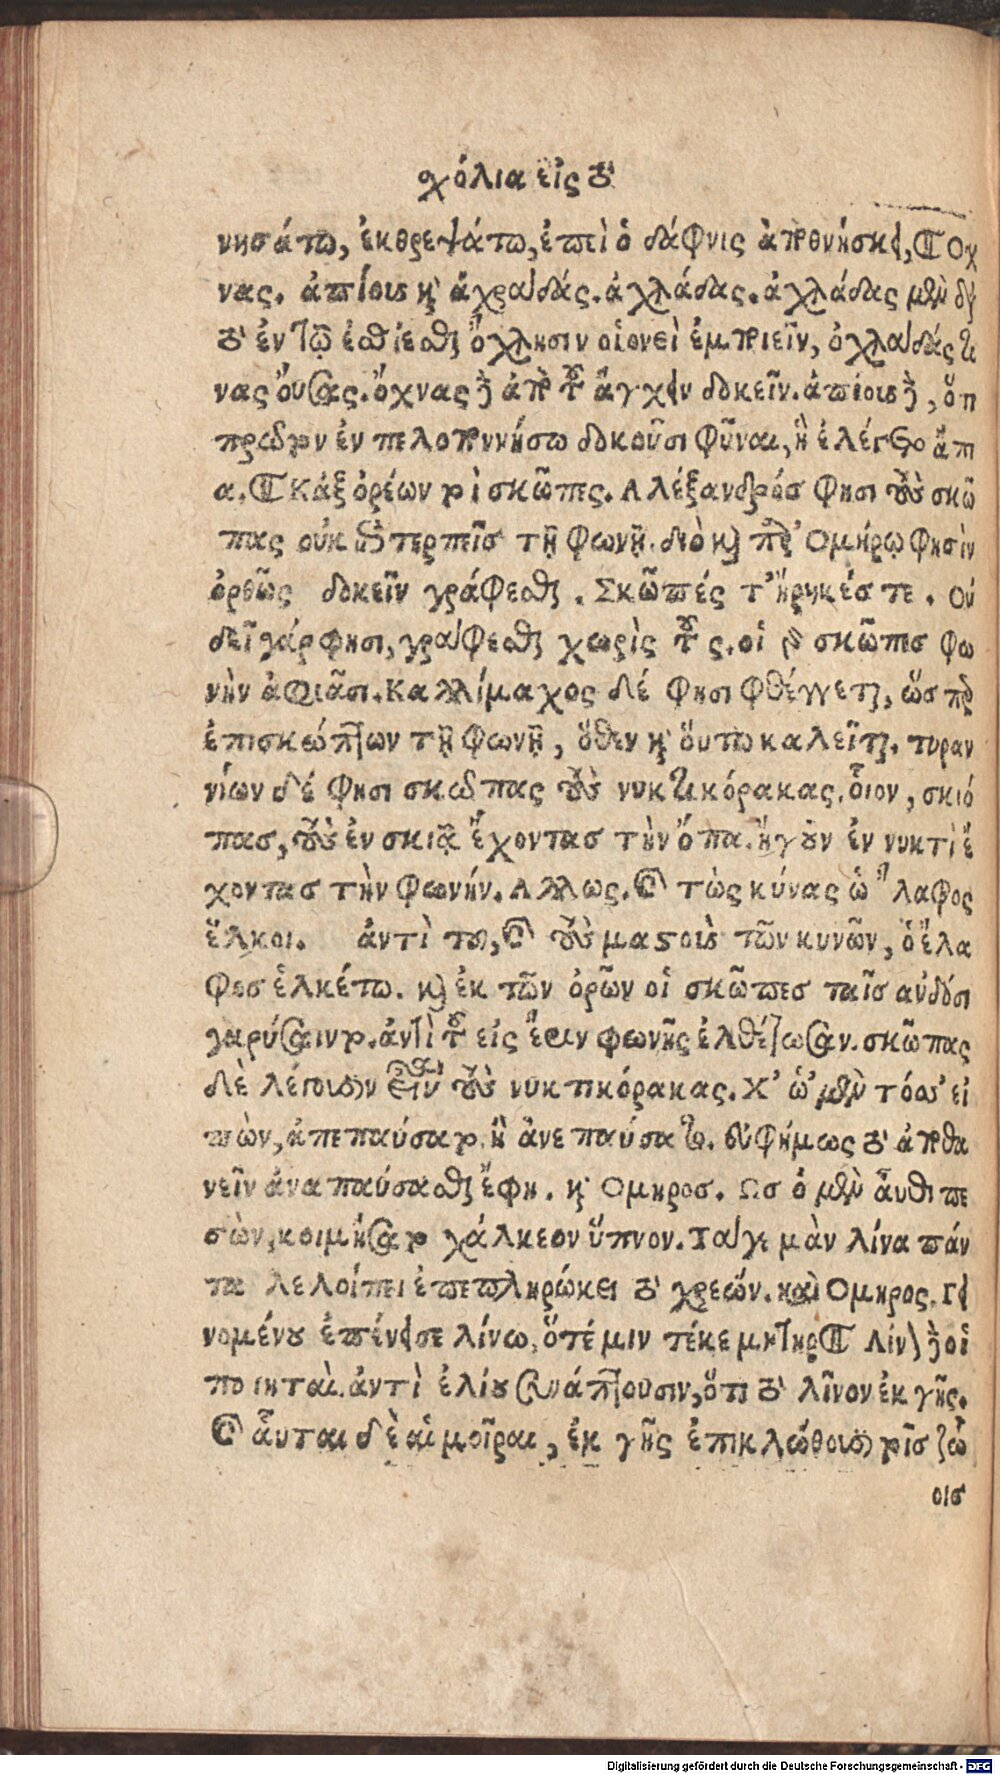 χόλια εἰς τὸ
νησάτω, ἐκθρεψάτω, ἐπεὶ ὁ δάφνις ἀποθνήσκει, ¶ Οχ
νας. ἀπίους καὶ ἀχράδας. ἀχλάδας. ἀχλάδας μὲν διὰ
τὸ ἐν τῷ ἐσθίεσθαι ὄχλησιν οἱονεὶ ἐμποιεῖν, ὀχλάδάς τι
νας οὔσας. ὄχνας δὲ ἀπὸ τοῦ ἄγχειν δοκεῖν. ἀπίους δὲ, ὅτι
πρῶτον ἐν πελοποννήσω δοκοῦσι φῦναι, ἣ ἐλέγετο ἄπι
α. ¶ Κἀξ ὀρέων τοὶ σκῶπες. Αλέξανδρός φησι τοὺς σκῶ
πας οὐκ εὐτερπεῖς τῇ φωνῇ. διὸ καὶ παρ' Ομήρῳ φησὶν
ὀρθῶς δοκεῖν γράφεσθαι. Σκῶπές τ' ἤρηκές τε. Οὐ
δεῖ γάρ φησι, γράφεσθαι χωρὶς τοῦ ς. οἱ γὰρ σκῶπες φω
νὴν ἀφιᾶσι. Καλλίμαχος δέ φησι φθέγγεται, ὥσπερ
ἐπισκώπτων τῇ φωνῇ, ὅθεν καὶ οὕτω καλεῖται. τυραν
νίων δέ φησι σκῶπας τοὺς νυκτικόρακας. οἷον, σκιό
πας, τοὺς ἐν σκιᾷ ἔχοντας τὴν ὄπα. ἤγουν ἐν νυκτὶ ἔ
χοντας τὴν φωνήν. Αλλως. Καὶ τὼς κύνας ὡ 'λαφος
ἕλκοι. ἀντὶ του, καὶ τοὺς μαστοὺς τῶν κυνῶν, ὁ ἔλα
φος ἑλκέτω. καὶ ἐκ τῶν ὀρῶν οἱ σκῶπες ταῖς ἀηδόσι
γαρύσαιντο. ἀντὶ τοῦ εἰς ἔριν φωνῆς ἐλθέτωσαν. σκῶπας
δὲ λέγουσιν εἶναι τοὺς νυκτικόρακας. Χ' ὡ μὲν τόσσ' εἰ
πὼν, ἀπεπαύσατο. ἢ ἀνεπαύσατο. εὐφήμως τὸ ἀποθα
νεῖν ἀναπαύσασθαι ἔφη. καὶ Ομηρος. Ως ὁ μὲν αὖθι πε
σὼν, κοιμήσατο χάλκεον ὕπνον. Τά γε μὰν λίνα πάν
τα λελοίπει ἐπεπληρώκει τὸ χρεών. καὶ Ομηρος. Γει
νομένου ἐπένησε λίνω, ὅτέ μιν τέκε μήτηρ ¶ Λίνον δὲ οἱ
ποιηταὶ. ἀντὶ ἐλίου συνάπτουσιν, ὅτι τὸ λῖνον ἐκ γῆς.
καὶ αὗται δὲ αἱ μοῖραι, ἐκ γῆς ἐπικλώθουσι τοῖς ζώ
οις
Digitalisierung gefördert durch die Deutsche Forschungsgemeinschaft - DFG